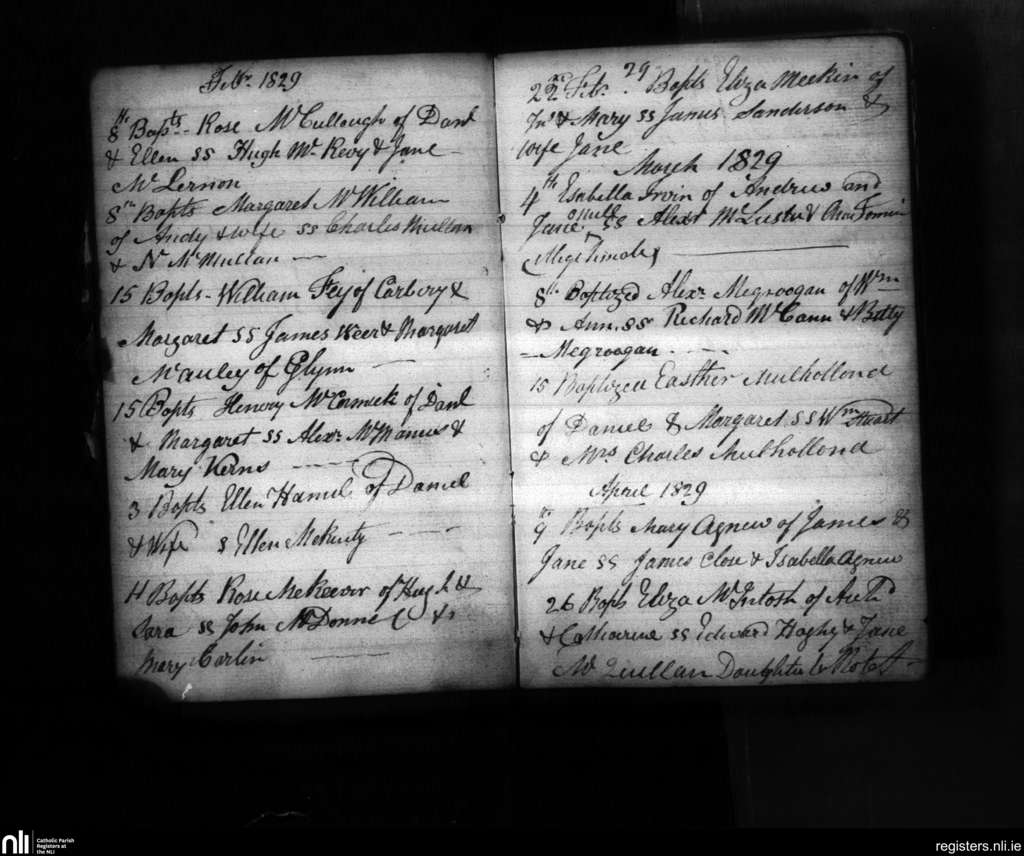 Febr. 1829
8th Bapts - Rose McCullough of Danl
& Ellen SS Hugh Mc Kevy & Jane
McLernon
8th Bapts Margaret McWilliam
of Andy & wife SS Charles Mullan
& N. McMullan
15 Bapts - William Fey of Carbery &
Margaret SS James Weer & Margaret
McAuley of Glynn
15 Bapts Henory McCormick of Danl
& Margaret SS Alexr McManus &
Mary Kerns
3 Bapts Ellen Hamel of Daniel
& Wife S Ellen McKinty
11 Bapts Rose McKeever of Hugh &
Sara SS John McDonnel &
Mary Carlin
22nd Feb. 29 Bapts Eliza Meekin of
Jno & Mary SS James Sanderson &
wife Jane
March 1829
4th Esabella Irvin of Andrew and
Jane SS Alexr McLuster &
8th Baptized Alexr Megroogan of Wm
& Ann SS Richard McCann & Betty
Megroogan
15 Baptized Easther Mulhollond
of Daniel & Margaret SS Wm Stuart
& Mrs Charles Mulhollond
April 1829
9th Bapts Mary Agnew of James &
Jane SS James Close & Isabella Agnew
26 Bapts Eliza McIntosh of
& Catharine SS Edward Haghy & Jane
Mc Quillan Daughter to Robt
nli
Catholic Parish
Registers at
the NLI
registers.nli.ie